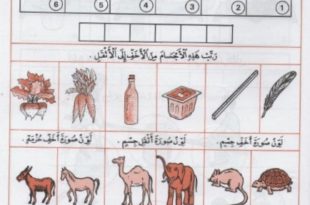 6 5 4 3 2 1
رَتِّبْ هَذِهِ الْأَجْسَامَ مِنَ الْأَخَفِّ إِلَى الْأَثْقَلِ .
لَوِّنْ صُورَةَ أَخَفِّ جِسْمٍ .
لَوِّنْ صُورَةَ أَثْقَلِ جِسْمٍ .
لَوِّنْ صُورَةَ أَخَفِّ